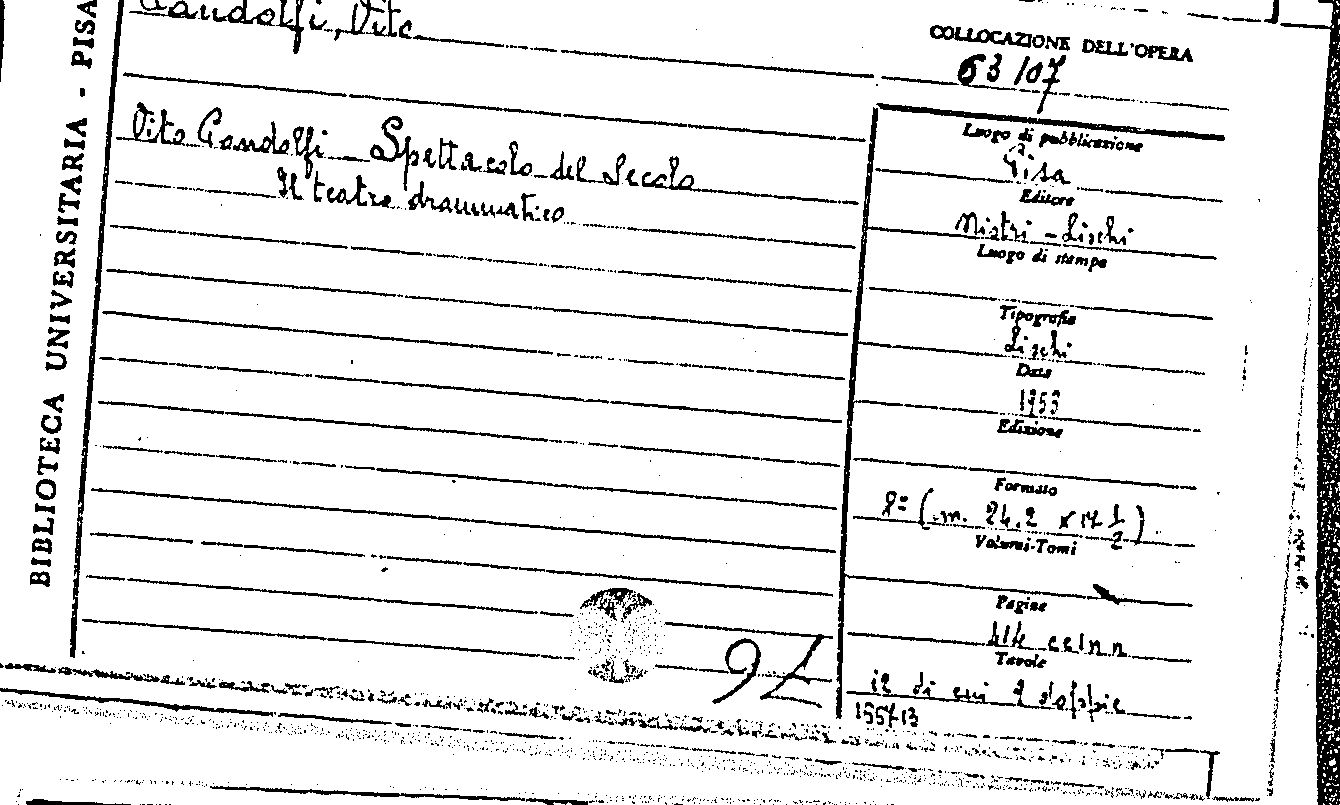 Pandolfi, Vito
COLLOCAZIONE DELL'OPERA
63/07
Vito Pandolfi - Spettacolo del Secolo
Il teatro drammatico
Luogo di pubblicazione
Pisa
Editore
Nistri-Lischi
Luogo di stampa
Tipografia
Lischi
Data
1953
Edizione
Formato
8º (cm. 24,2 x 17 1/2)
Volumi-Tomi
Pagine
414
Tavole
12 di cui 2 doppie
155713
BIBLIOTECA UNIVERSITARIA - PISA